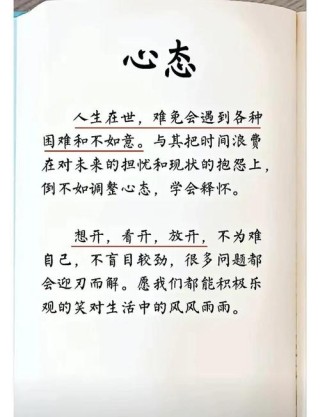 心态
人生在世，难免会遇到各种
困难和不如意。与其把时间浪费
在对未来的担忧和现状的抱怨上，
倒不如调整心态，学会释怀。
想开，看开，放开，不为难
自己，不盲目较劲，很多问题都
会迎刃而解。愿我们都能积极乐
观的笑对生活中的风风雨雨。